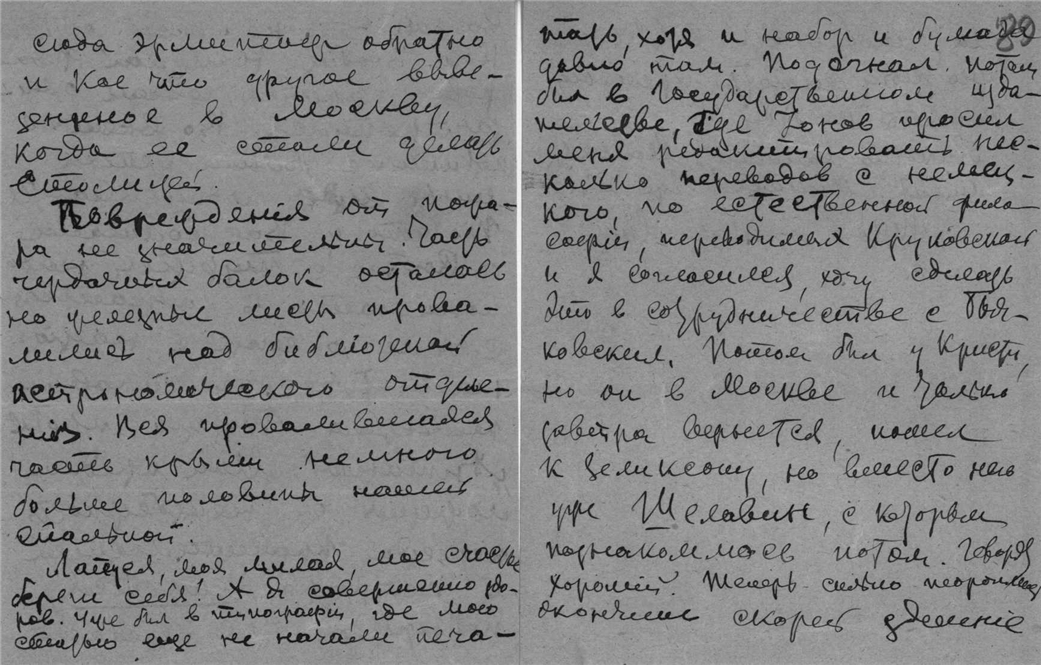 сюда Эрмитаж обратно
и кое что другое выве-
зенное в Москву,
когда ее стали делать
столицей.
Повреждения от пожа-
ра не значительны. Часть
чердачных балок осталась
но железные листы прова-
лились над библіотекой
астрономического отделе-
нія. Вся провалившаяся
часть крыши немного
больше половины нашей
спальной.
моя милая, мое счастье
береги себя! А я совершенно здо-
ров. Уже был в типографіи, где мою
статью еще не начали печа-
89
тать, хотя и набор и бумага
давно там. Потом
был в Государственном изда-
тельстве, где Ионов просил
меня редактировать нес-
колько переводов с немец-
кого, по естественной фило-
софіи, переводимых Круковской
и я согласился, хочу сделать
это в сотрудничестве с
ковским. Потом был у Кристи,
но он в Москве и только
завтра вернется, пошел
к Зеликсону, но вместо него
уже Шелавин, с которым
познакомлюсь потом. Говорят
хороший. Теперь сильно
окончить скорей